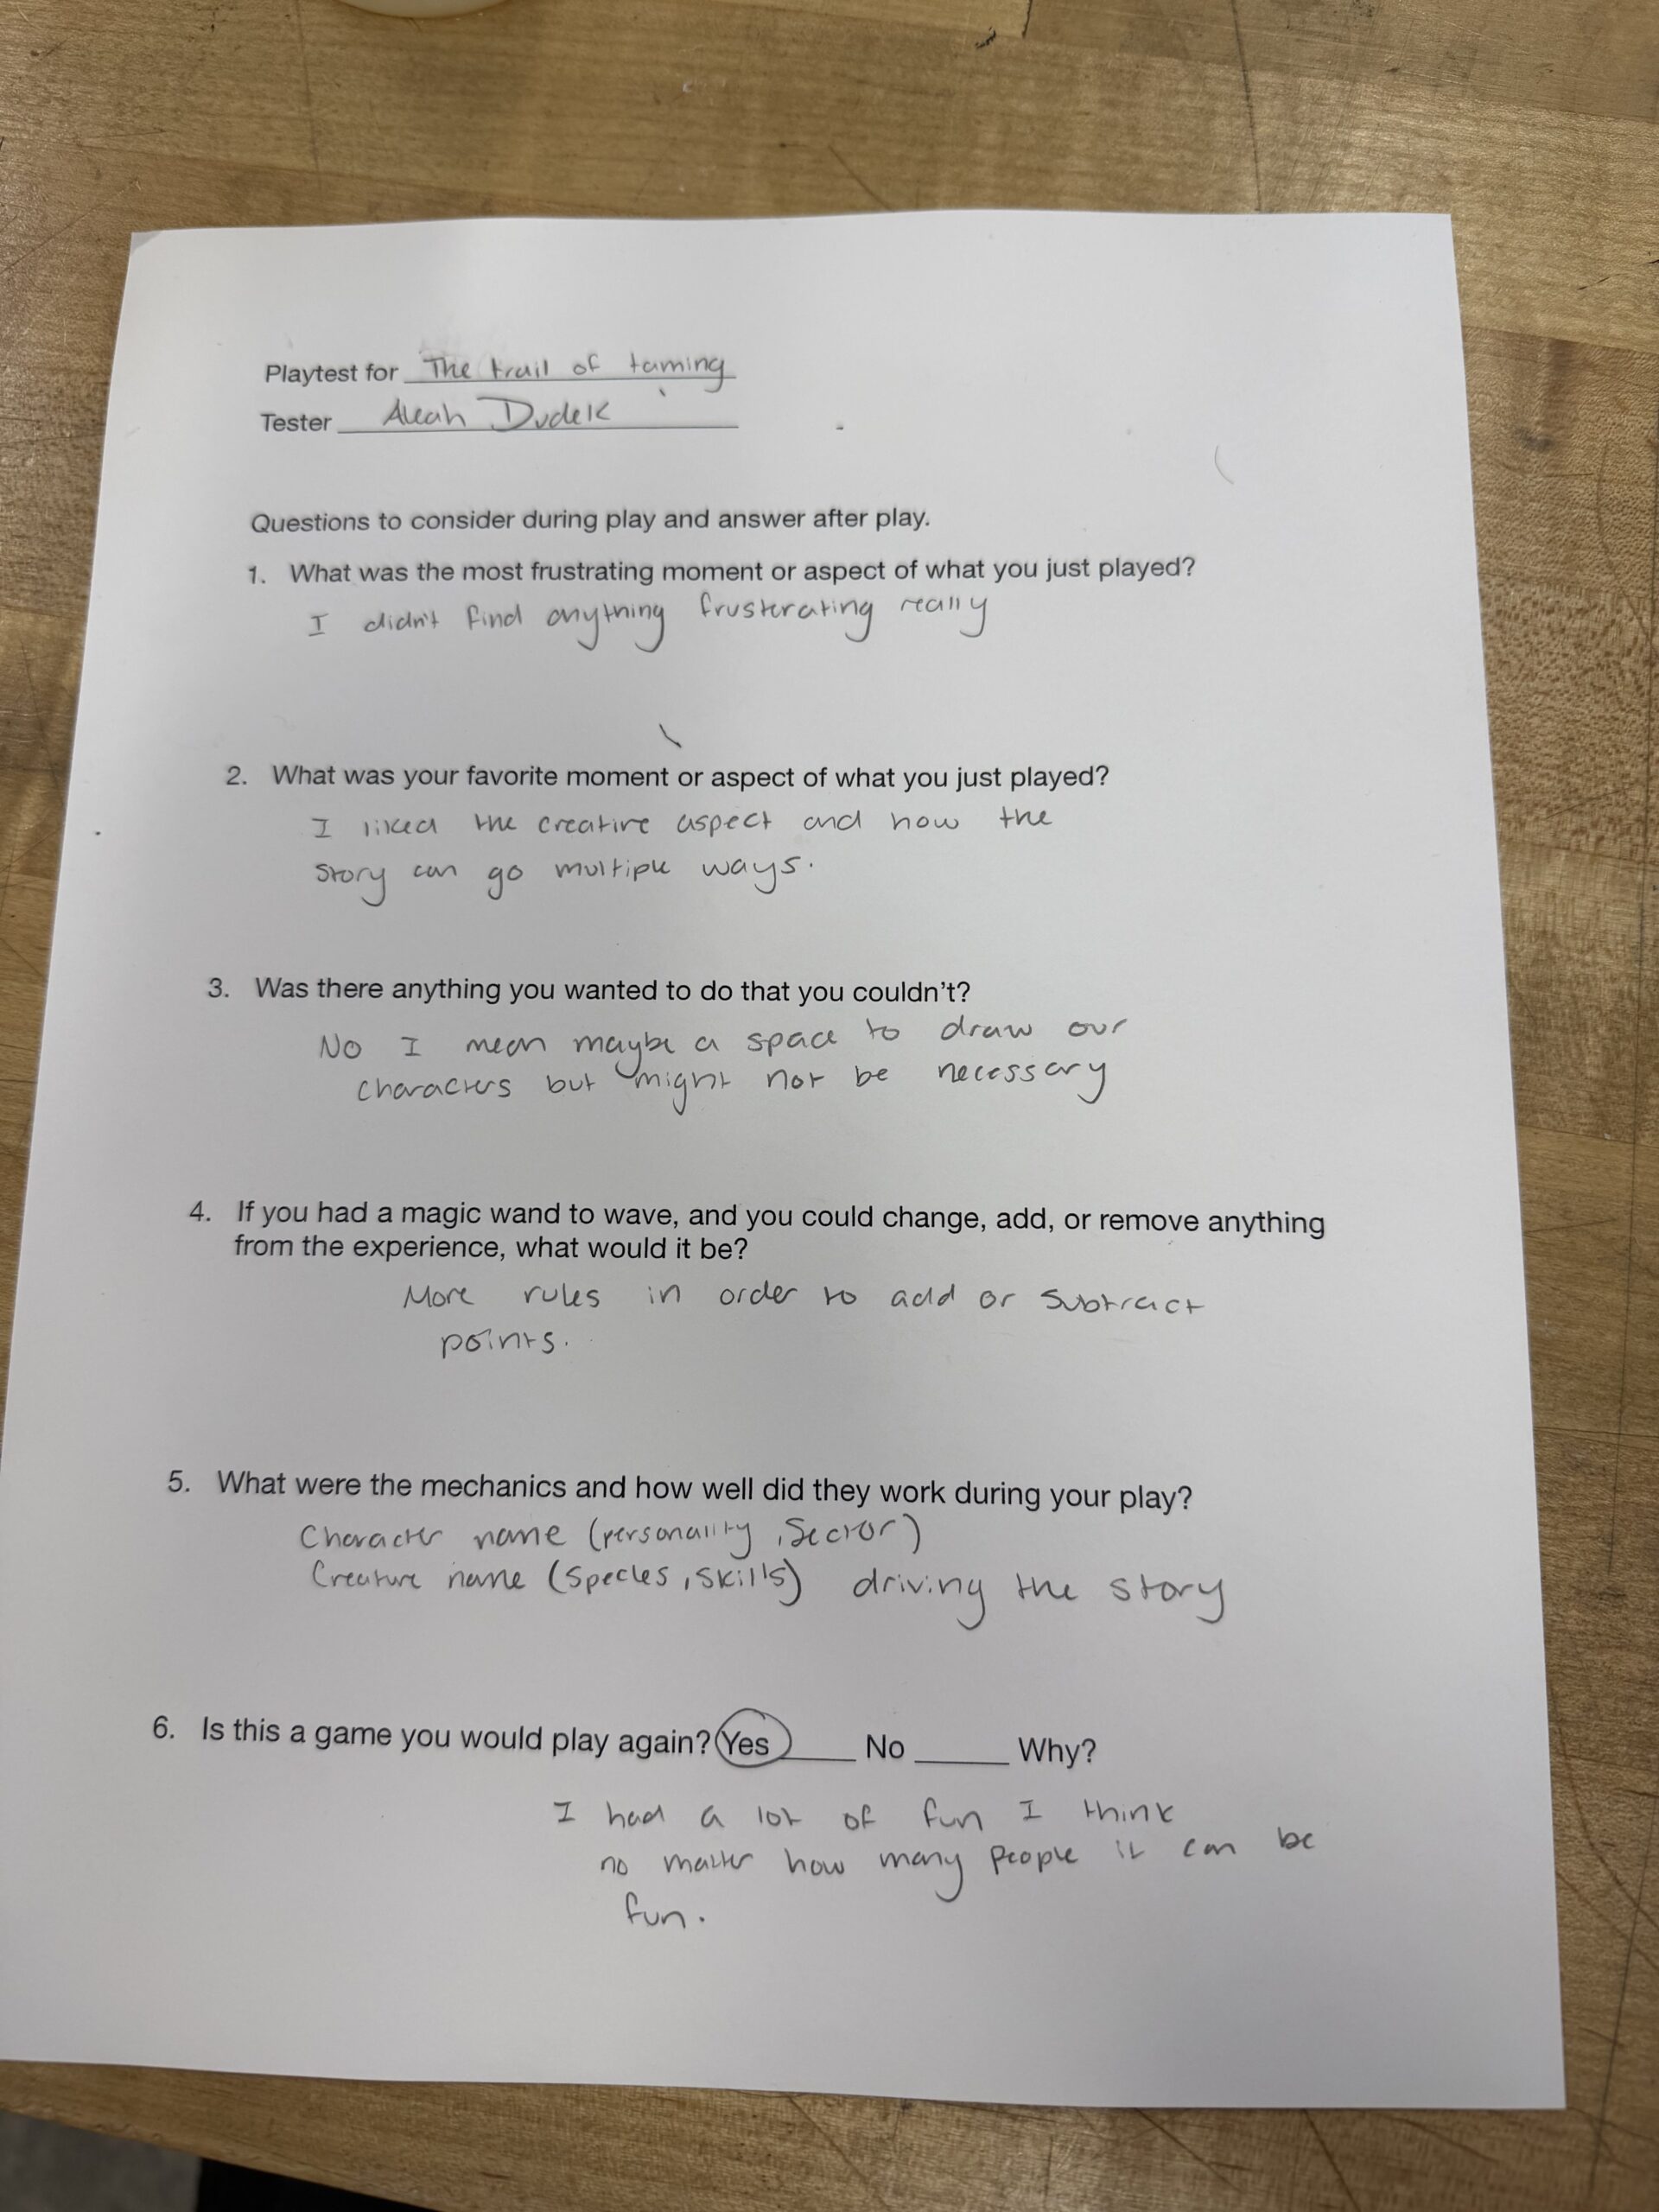 Playtest for The trail of taming
Tester Aleah Dudek
Questions to consider during play and answer after play.
1. What was the most frustrating moment or aspect of what you just played?
I didn't find anything frusterating really
2. What was your favorite moment or aspect of what you just played?
I liked the creative aspect and how the
story can go multiple ways.
3. Was there anything you wanted to do that you couldn't?
No I mean maybe a space to draw our
characters but might not be necessary
4. If you had a magic wand to wave, and you could change, add, or remove anything
from the experience, what would it be?
More rules in order to add or subtract
points.
5. What were the mechanics and how well did they work during your play?
Character name (personality, Sector)
Creature name (Species, skills) driving the story
6. Is this a game you would play again? Yes____ No ______ Why?
I had a lot of fun I think
no matter how many people it can be
fun.